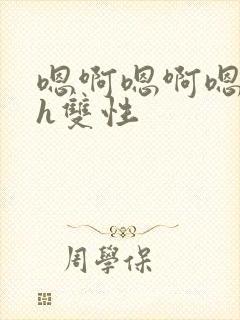 嗯啊嗯啊嗯
h雙性
周學保